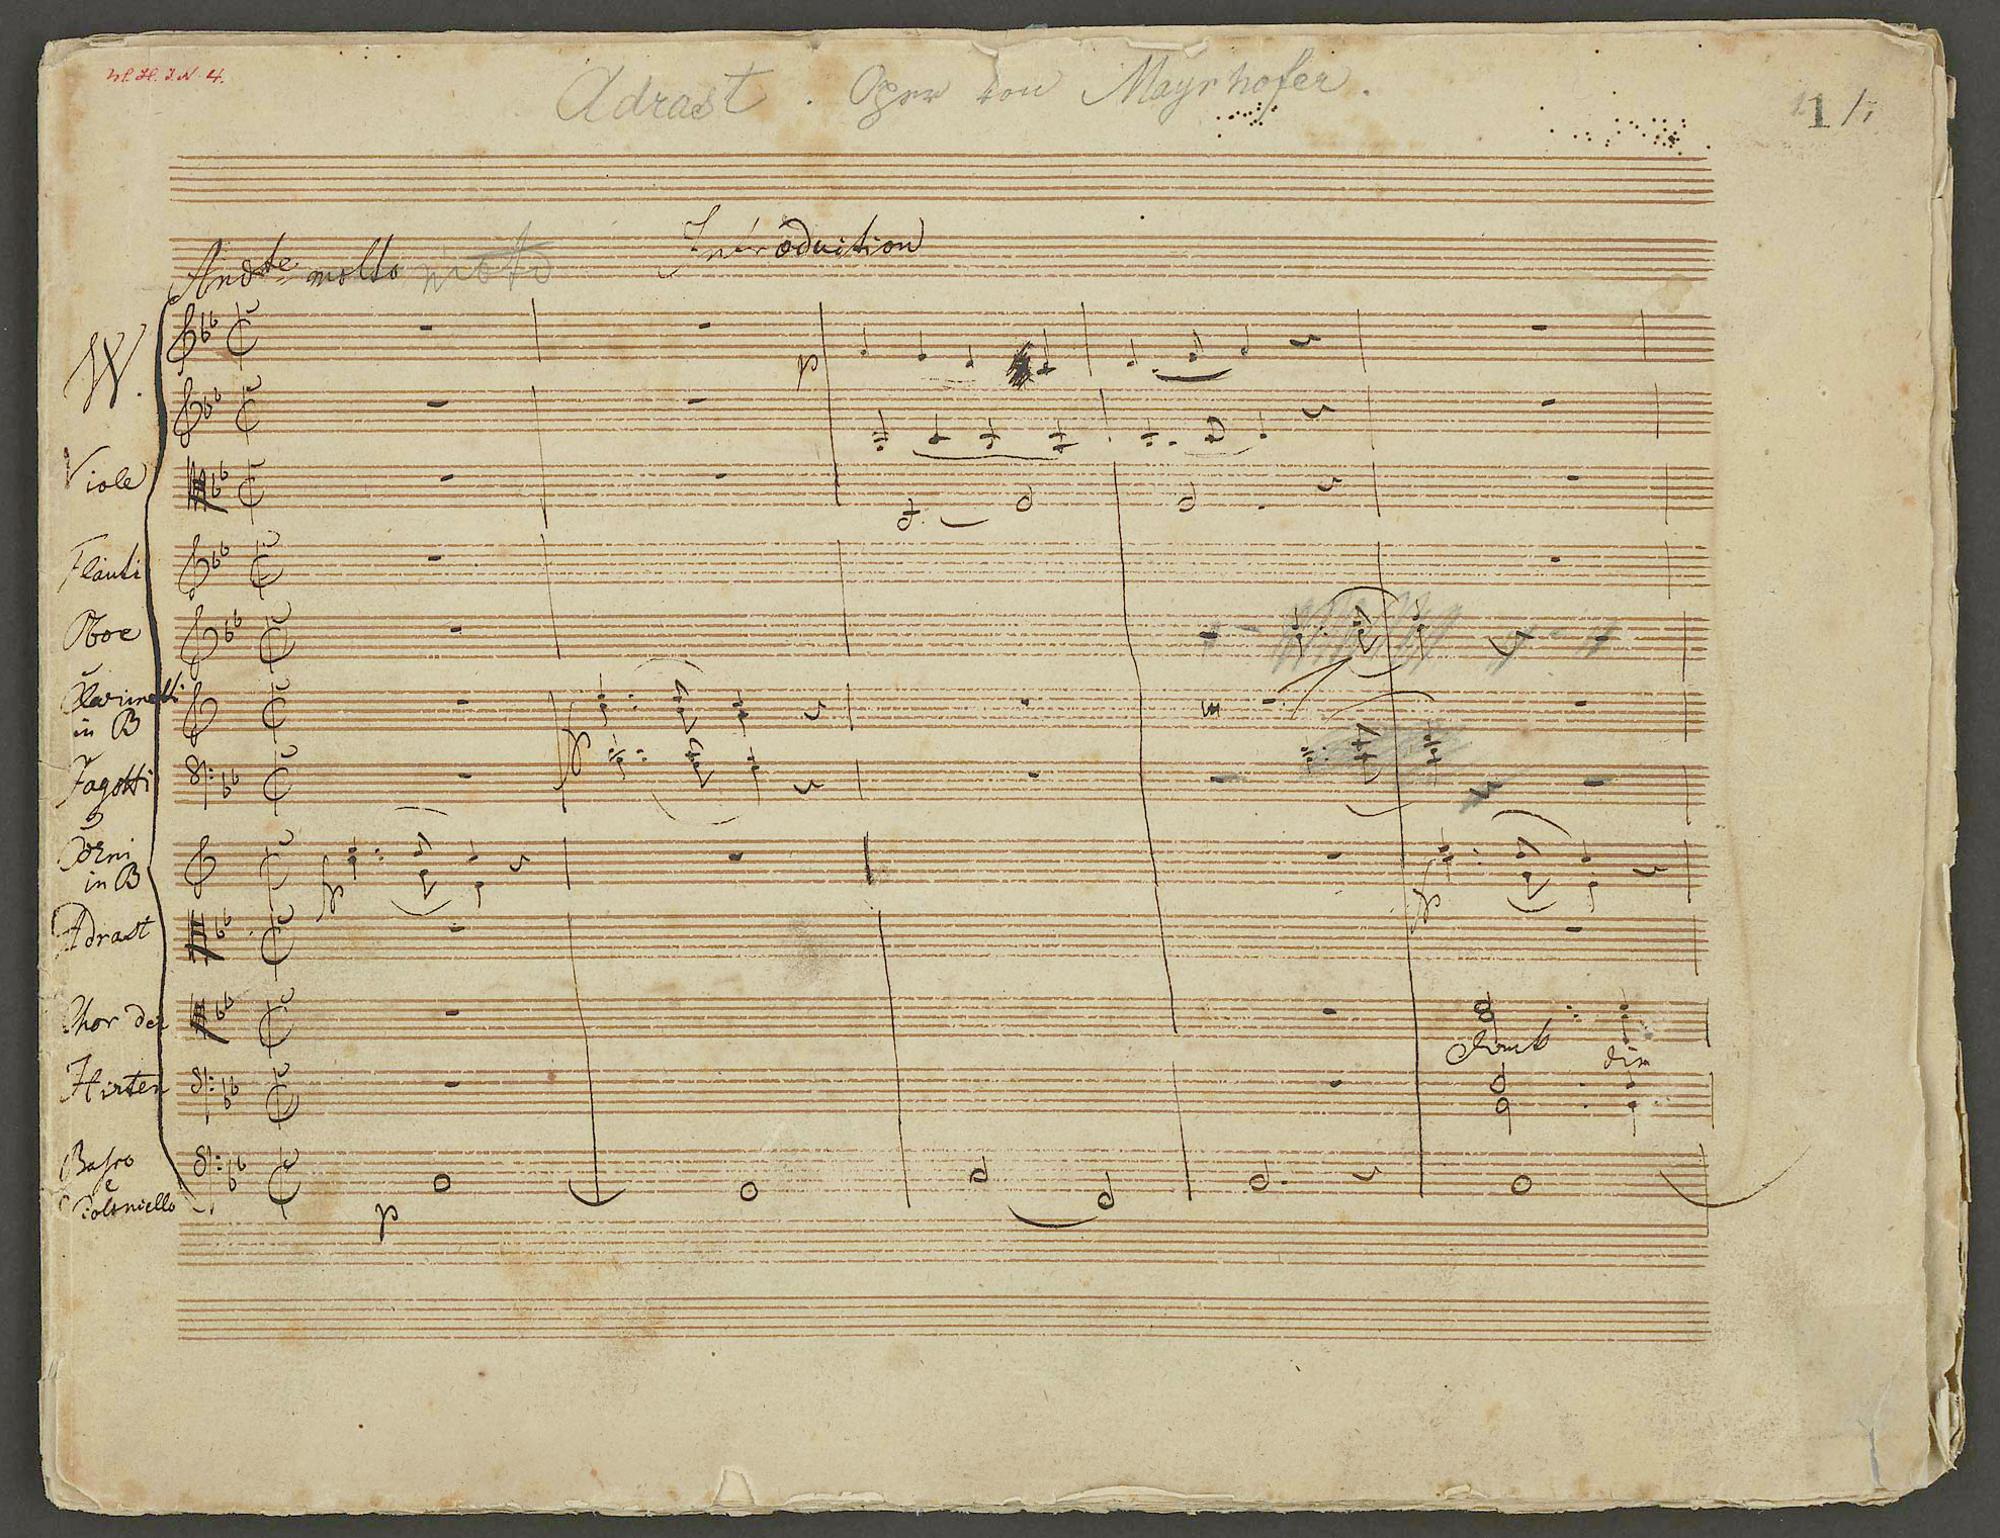 Adrast . Oper von Mayrhofer.
1
Introduction
Andte molto moto
V.
Viole
Flauti
Oboe
Clarinetti
in B
Fagotti
Corni
in B
Adrast
Chor der
Hirten
Dank dir
Basso
e
Violoncello
p
p
p
p
p